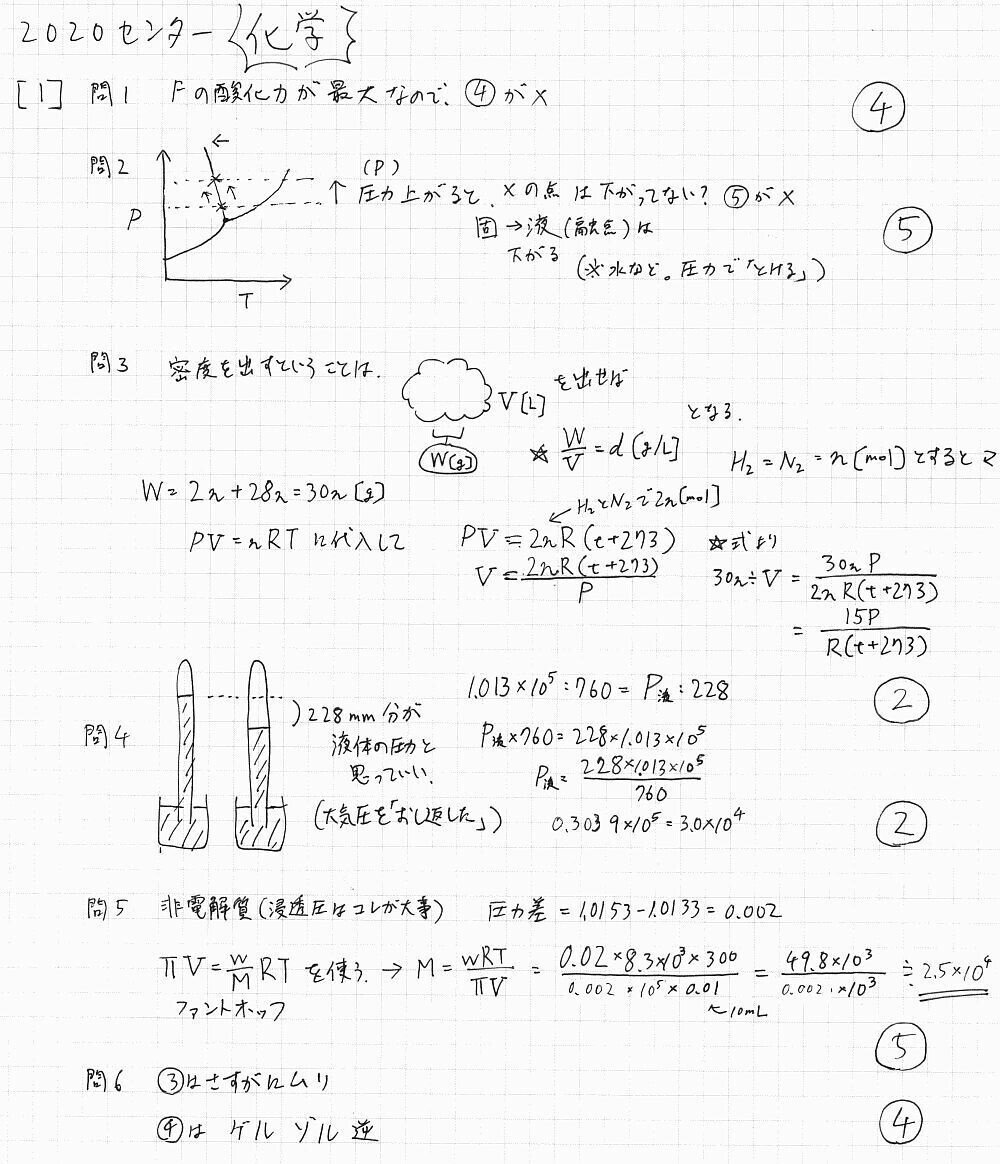 2020センター{化学}
[1] 問1 Fの酸化力が最大なので、④が× ④
問2 P T ← ↑ (P)
圧力上がると、×の点は下がってない? ⑤が× ⑤
固→液(融点)は
下がる (※水など。圧力で「とける」)
問3 密度を出すということは、 V[L] W[g] を出せば
☆ W/V = d [g/L] となる。 H₂ = N₂ = n [mol] とすると
W = 2n + 28n = 30n [g]
←H₂とN₂で2n[mol]
PV = nRT に代入して PV = 2nR(t+273) ☆式より
V = 2nR(t+273)/P 30n÷V = 30nP/2nR(t+273)
= 15P/R(t+273)
②
問4 228mm分が
液体の圧力と
思っていい。
(大気圧を「おし返した」)
1.013×10⁵ : 760 = P液 : 228
P液×760 = 228×1.013×10⁵
P液 = 228×1.013×10⁵/760
0.3039×10⁵ = 3.0×10⁴ ②
問5 非電解質(浸透圧はコレが大事) 圧力差 = 1.0153-1.0133 = 0.002
πV = w/M RT を使う。→ M = wRT/πV = 0.02×8.3×10³×300/0.002×10⁵×0.01 = 49.8×10³/0.002×10³ ≒ 2.5×10⁴
ファントホッフ ↖10mL
⑤
問6 ③はさすがにムリ
④は ゲル ゾル 逆 ④